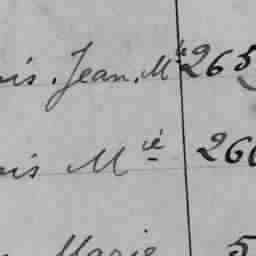 is. Jean. Mie 265
is Mie 26
Marie 5